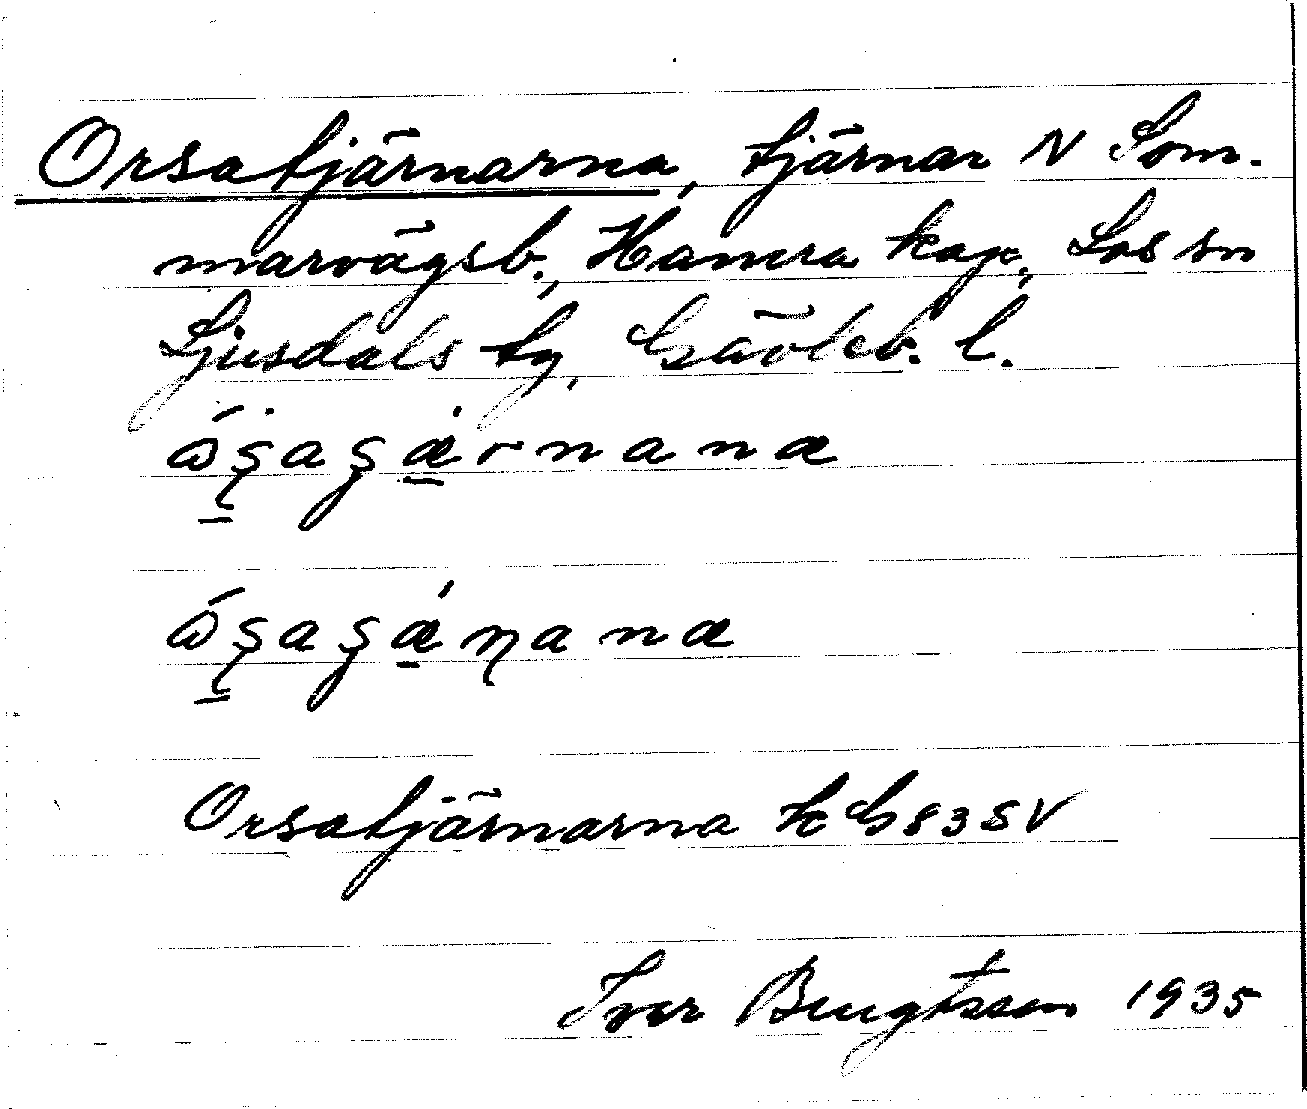 Orsatjärnarna, tjärnar N Som-
marvägsb., Hamra kap., Los sn
Ljusdals tg, Gävleb. l.
Orsatjärnarna k G 83 SV
Ivar Bengtsson 1935